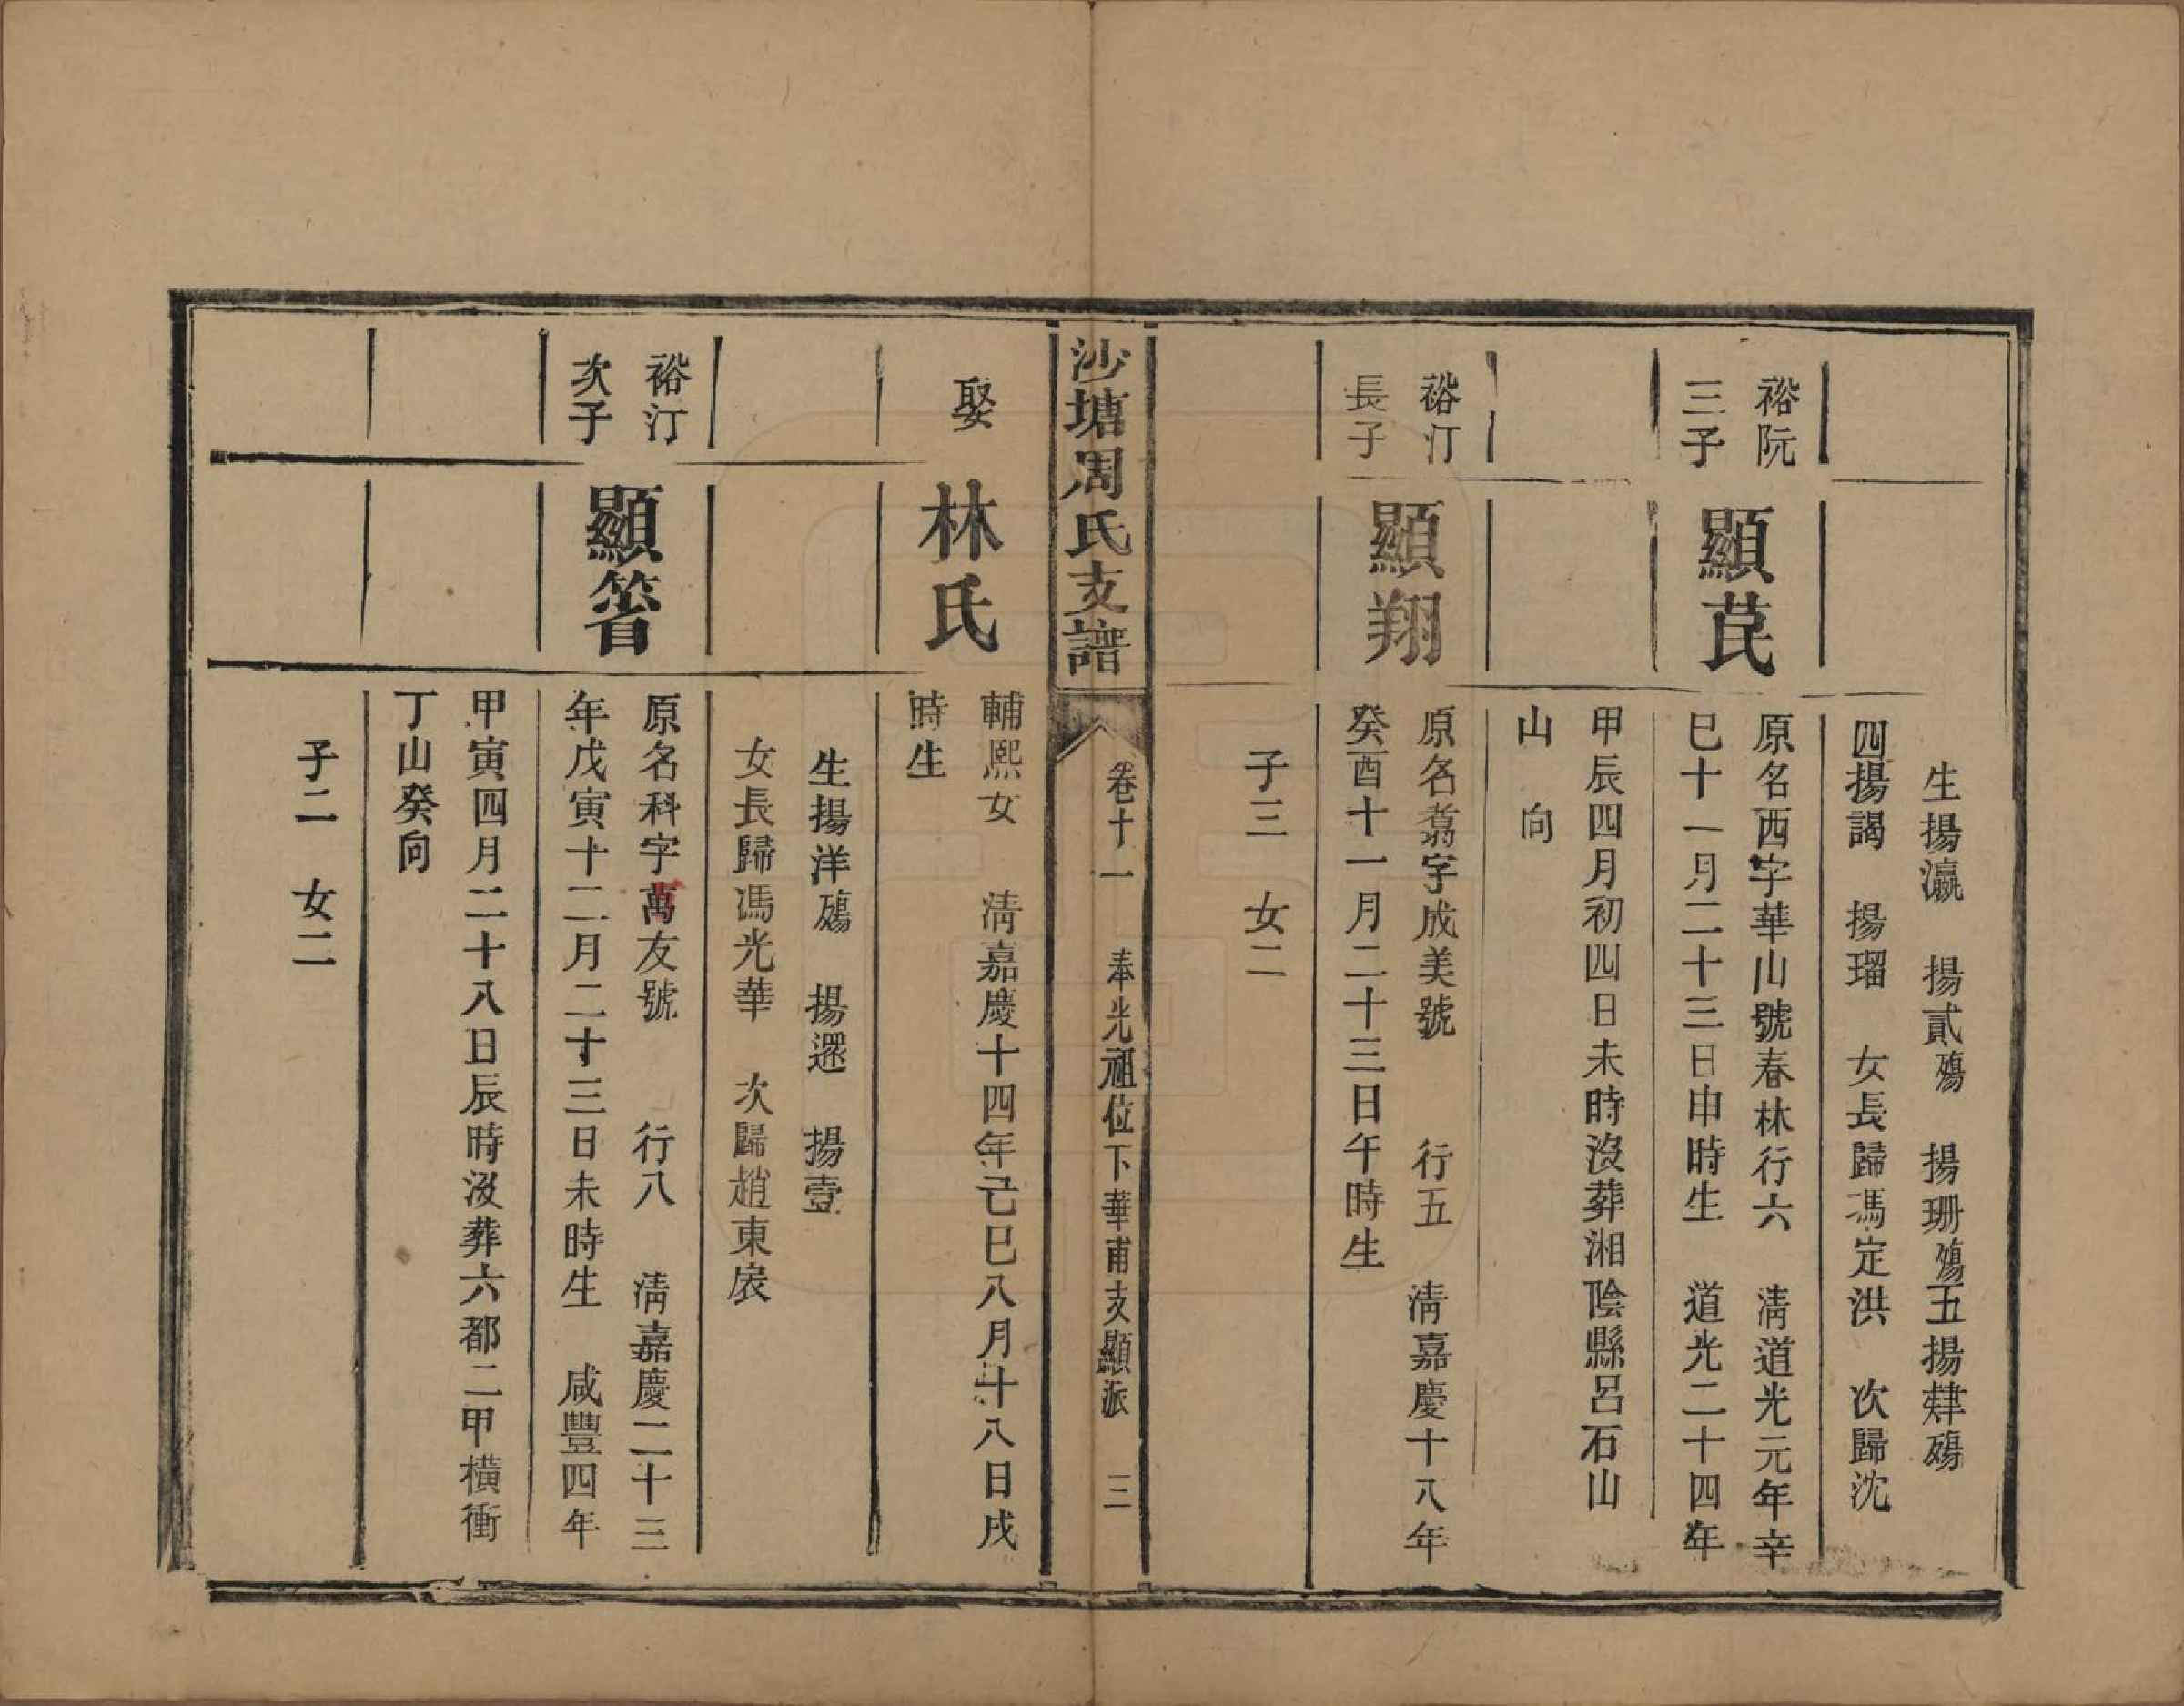 生揚瀛　揚貳殤　揚珊殤五揚肆殤
四揚謁　揚瑠　女長歸馮定洪　次歸沈
裕阮
三子
顯苠
原名西字華山號春林行六　清道光元年辛
巳十一月二十三日申時生　道光二十四年
甲辰四月初四日未時沒葬湘陰縣呂石山
山　向
裕汀
長子
顯翔
原名翥字成美號　行五　清嘉慶十八年
癸酉十一月二十三日午時生
子三　女二
沙塘周氏支譜
卷十一　奉光祖位下華甫支顯派　三
娶
林氏
輔熙女　清嘉慶十四年己巳八月十八日戌
時生
生揚洋殤　揚還　揚壹
女長歸馮光華　次歸趙東扆
裕汀
次子
顯箵
原名科字萬友號　行八　清嘉慶二十三
年戊寅十二月二十三日未時生　咸豐四年
甲寅四月二十八日辰時沒葬六都二甲橫衝
丁山癸向
子二　女二